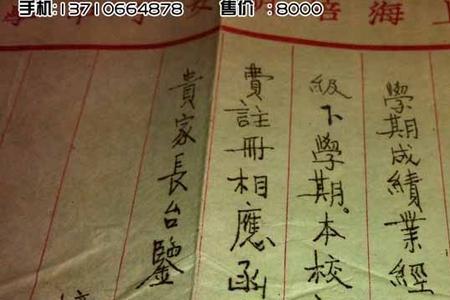 手机:13710664878 售价 :8000
上海培
學期成績業經
級下學期。本校
費註冊相應函
貴家長台鑒